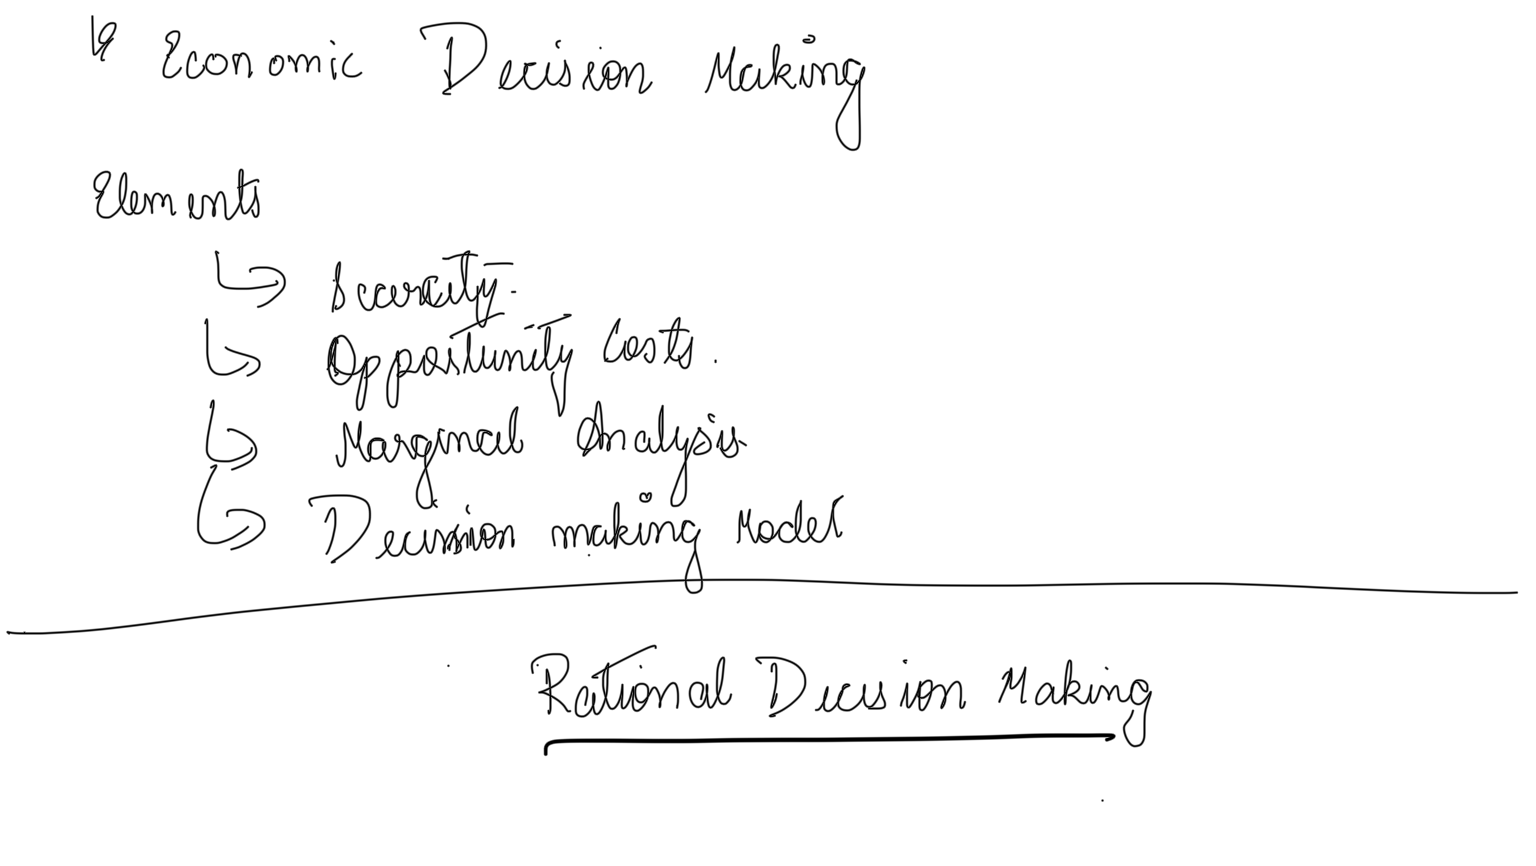 ↳ Economic Decision Making
Elements
↳ Scarcity.
↳ Opportunity Costs.
↳ Marginal Analysis
↳ Decision making Model
Rational Decision Making